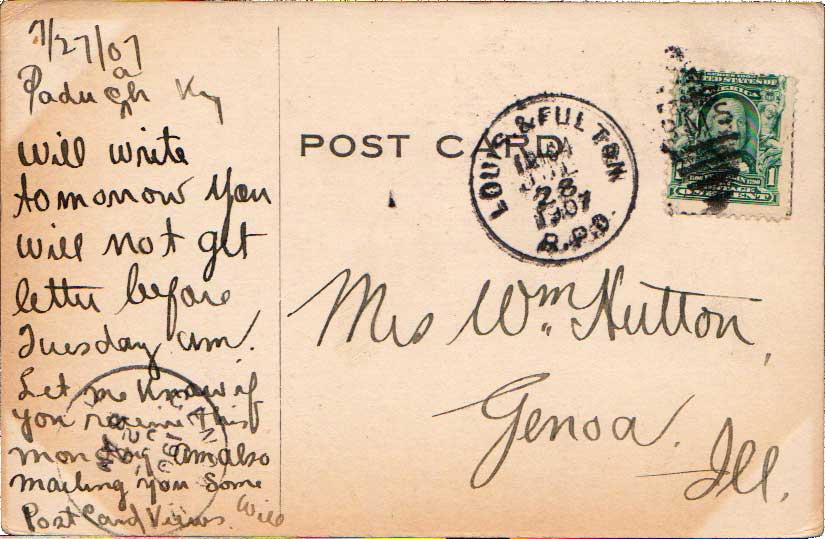 7/27/07
Paducah Ky
Will write
tomorrow you
will not get
letter before
Tuesday am.
Let me know if
you receive this
monday am also
mailing you some
Post Card Views. Will
POST CARD
LOUIS. & FULTON
JUL
28
1907
R.P.O.
SERIES 1902
UNITED STATES OF
AMERICA
1
Mrs Wm. Hutton,
Genoa.
Ill.